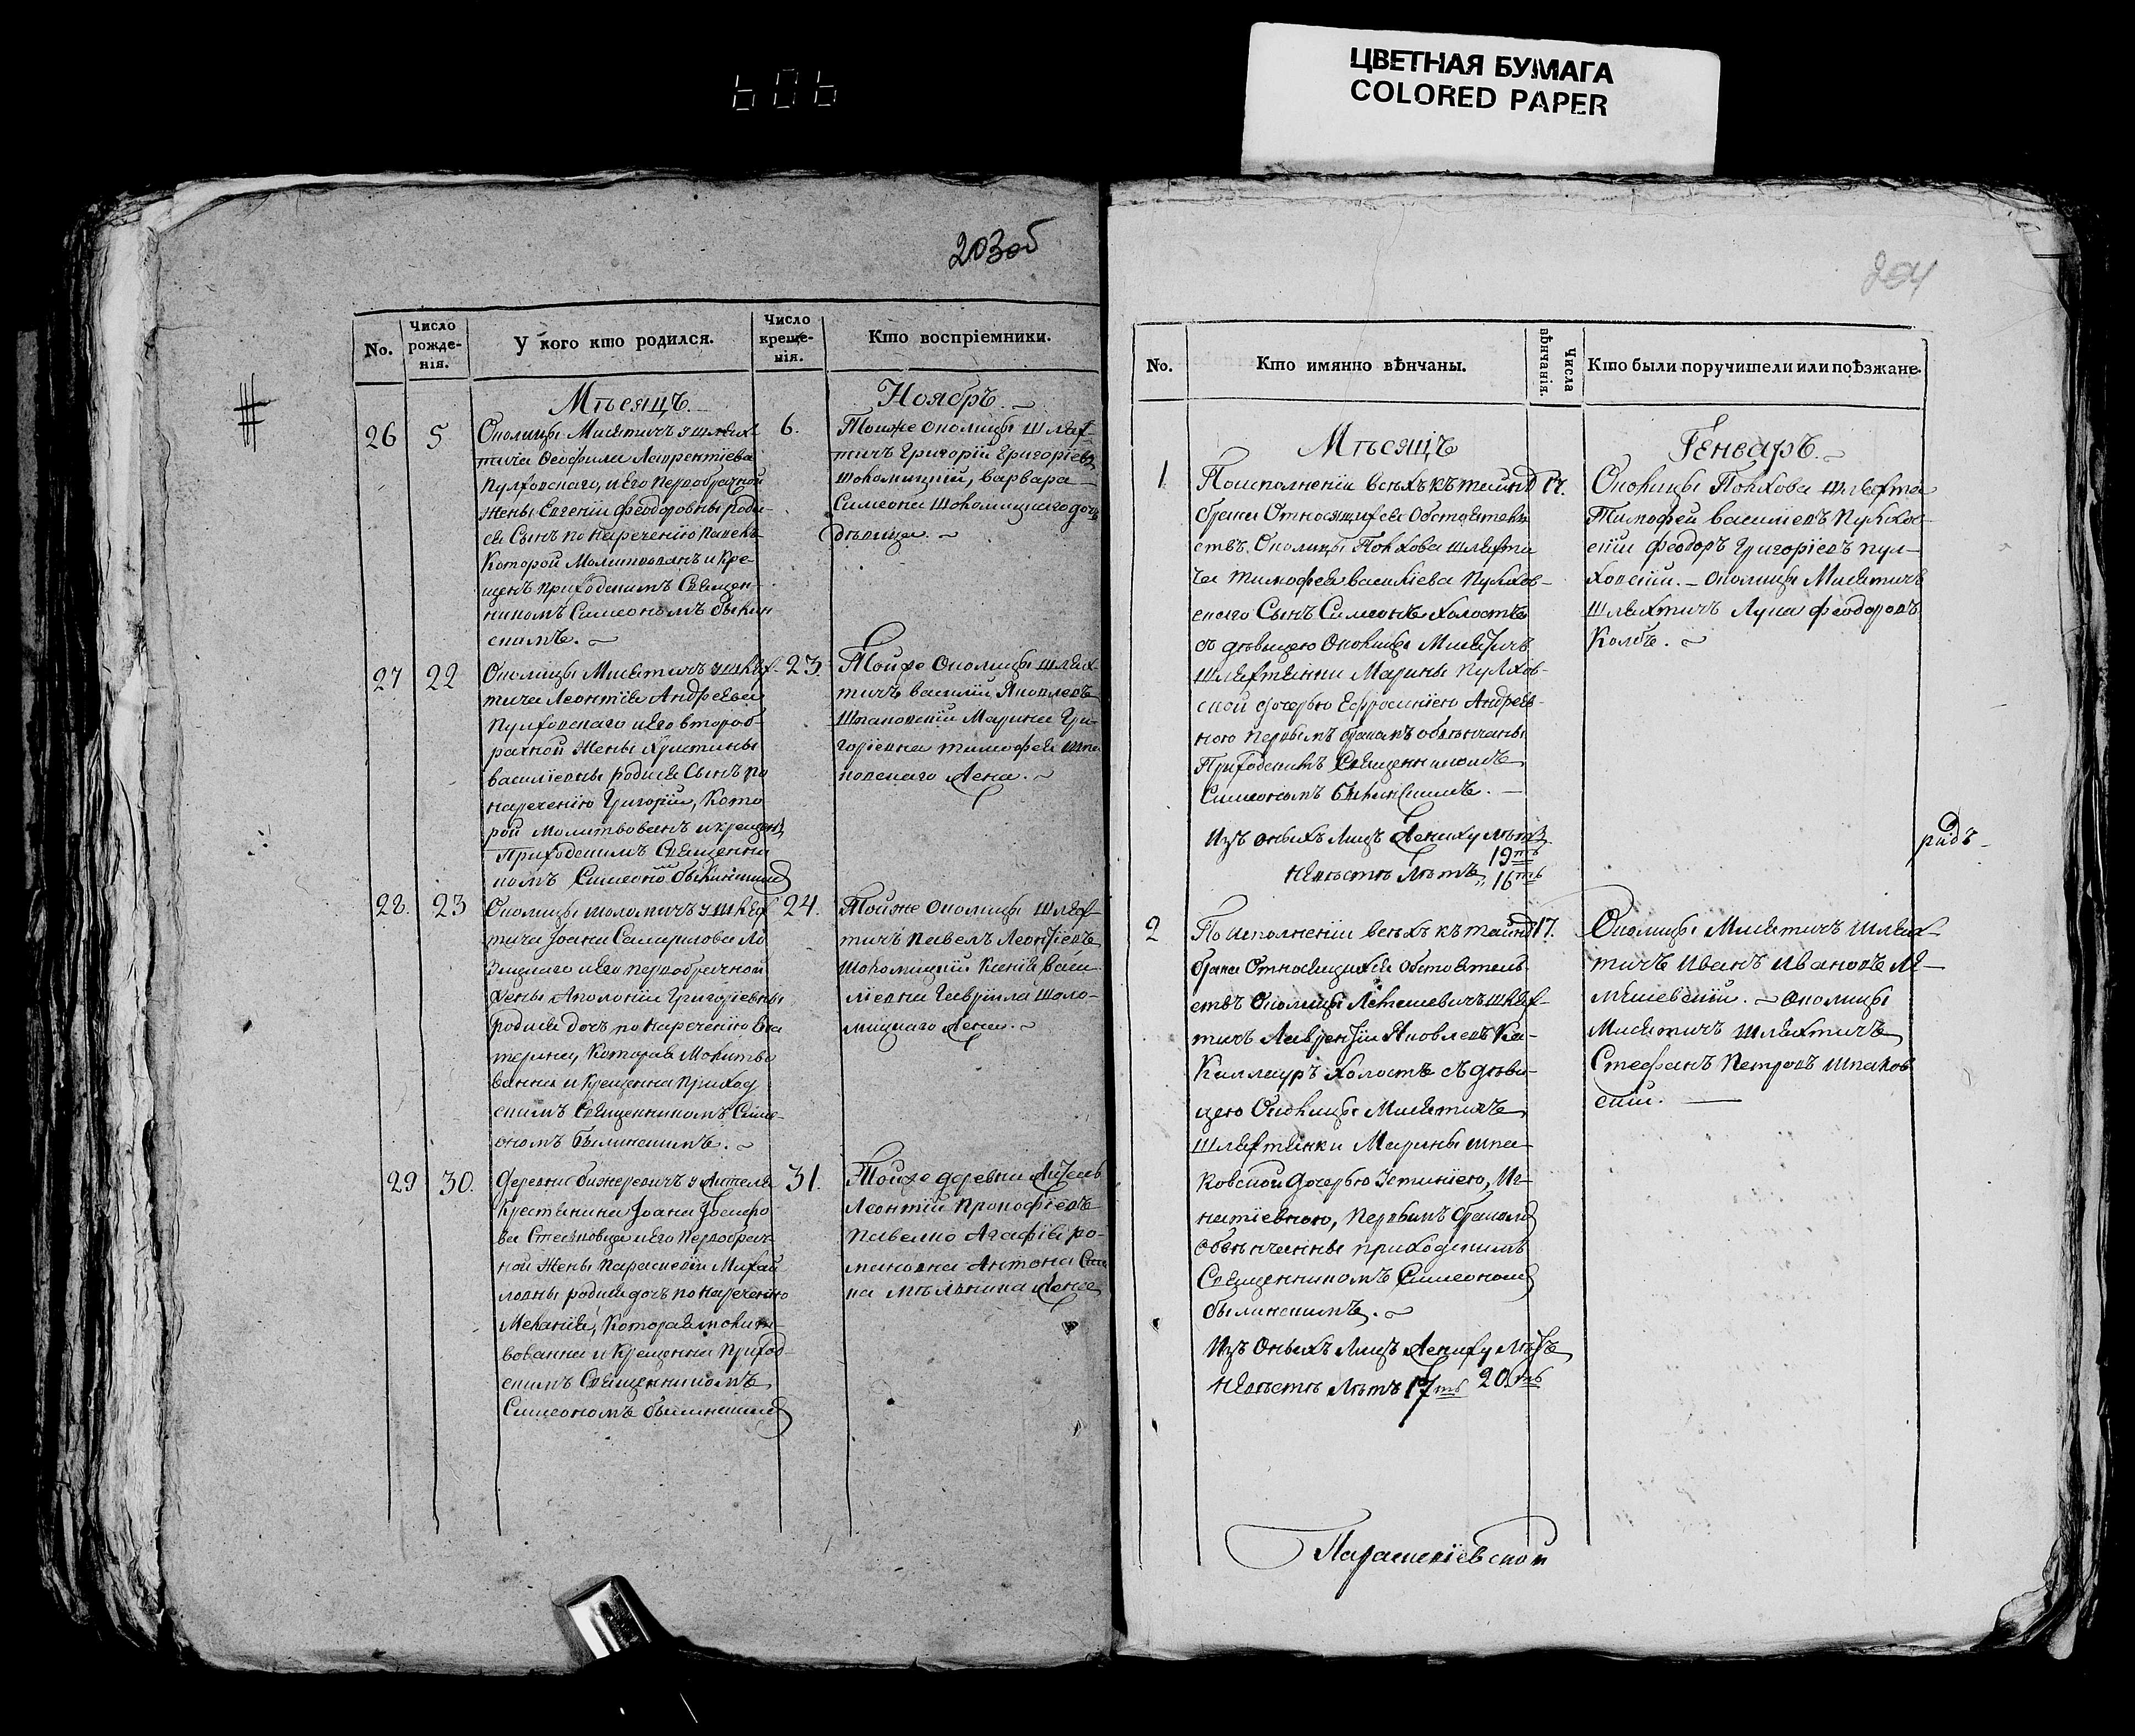 ЦВЕТНАЯ БУМАГА
COLORED PAPER
606
203об
No.
Число рожде-нія.
У кого кто родился.
Число креще-нія.
Кто воспріемники.
Мѣсяцъ
Ноябрь
26
5
6.
Околицы Мисятичъ у шлях-
тича Феофила Лаврентіева
Пулховскаго, и его первобрачной
жены Евгеніи Феодоровны роди-
ся сынъ по нареченію Павелъ
Которой Молитвованъ и кре-
щенъ приходскимъ Священ-
никомъ Симеономъ Былин
скимъ.
Тойже околицы шлях-
тичъ Григорій Григоріевъ
Шоломицкій, варвара
Симеона Шоломицкаго дочь
дѣвица.
27
22
23.
Околицы Мисятичъ у шлях-
тича Леонтія Андреева
Пулховскаго и его второб-
рачной жены Христины
василіевны родися Сынъ по
нареченію Григорій, Кото
рой Молитвованъ и крещенъ
Приходскимъ Священни
комъ Симеоно Былинскимъ
Тойже Околицы шлях-
тичъ василій Яковлевъ
Шпаковскій Марина Гри-
горіевна тимофея шпа
ковскаго жена.
28.
23
24.
Околицы шоломичъ у шлях-
тича Іоана Самуилова Ло
зицкаго и его первобрачной
жены Аполоніи Григоріевны
родися дочь по нареченію Ека
терина, Которая Молитво
ванна и крещенна приход
скимъ Священникомъ Симе-
ономъ Былинскимъ.
Тойже околицы шлях-
тичъ павелъ Леонтіевъ
Шоломицкій Ксенія васи
ліевна Гавріила Шоло-
мицкаго жена.
29
30.
31.
Крестянина Іоана
и его Первобрач
ной жены Параскевіи Михай
ловны родися дочь по нареченію
Меланія, Которая молит-
вованна и Крещенна Приход-
скимъ Священникомъ
Симеономъ былинскимъ
Тойже деревни житель
Леонтій Прокофіевъ
Агафія ро-
мановна Антона
на мѣльника жена
204
No.
Кто имянно вѣнчаны.
Числа вѣнчанія.
Кто были поручители или поѣзжане.
Мѣсяцъ
Генварь.
1
17.
По исполненіи всѣхъ къ тайнѣ
брака Относящихся Обстоятель
ствъ. Околицы Полхова шляхти
ча тимофея василіева Пулхов-
скаго Сынъ Симеонъ холостъ
съ дѣвицею Околицы Мисятичъ
шляхтянки Марины Пулхов-
ской дочерью Ефросиніею Андреев-
ною первымъ бракомъ обвѣнчаны
Приходскимъ Священникомъ
Симеономъ Былинскимъ.
Изъ оныхъ лицъ жениху лѣтъ
19ть
невѣстѣ лѣтъ 16ть
Околицы Полхова шляхта
Тимофей василіевъ Пулхов-
скій феодоръ Григоріевъ пул-
ховскій. - околицы Мисятичъ
шляхтичъ Лука феодоровъ
Колбъ.
радъ
2
17.
По исполненіи всѣхъ къ тайнѣ
брака Относящихся обстоятель
ствъ Околицы Летешевичъ шлях-
тичъ Лаврентій Яковлевъ Ка-
холостъ съ дѣви-
цею Околицы Мисятичъ
шляхтянки Марины шпа
ковской дочерью Устиніею, Иг-
натіевною, первымъ бракомъ
обвѣнчанны приходскимъ
Священникомъ Симеономъ
былинскимъ.
Изъ оныхъ лицъ жениху лѣтъ
20ть
невѣстѣ лѣтъ 17ть
Околицы Мисятичъ шлях-
тичъ Иванъ Ивановъ Ля-
околицы
Мисятичъ шляхтичъ
Стефанъ Петровъ шпаков
скій.
Параскевіевской